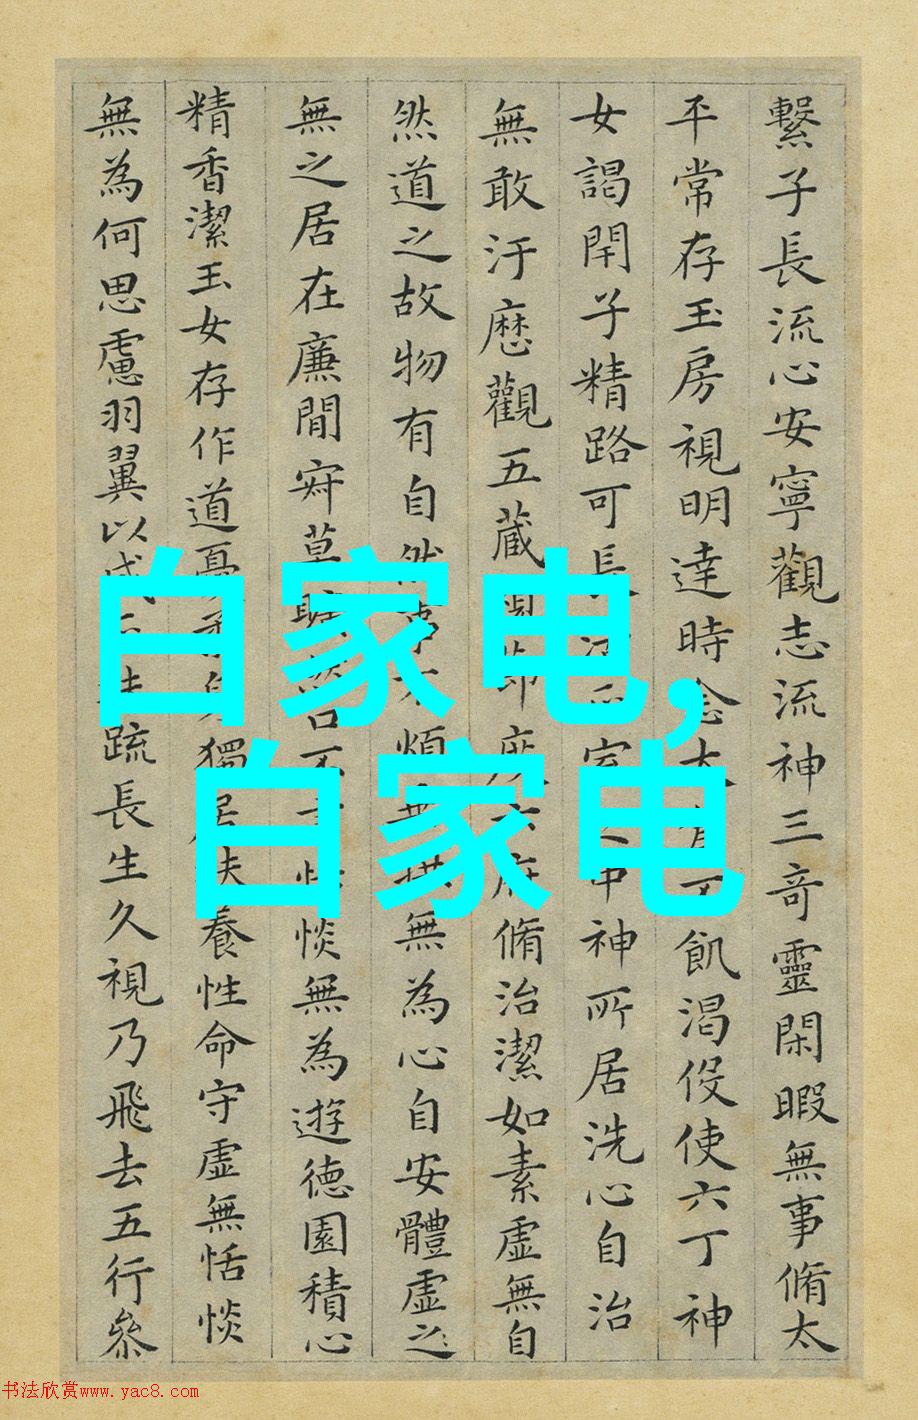 繫子長流心安寧觀志流神三奇靈閑暇無事脩太
平常存玉房視明達時念大不飢渴役使六丁神
女謁閇子精路可長室中神所居洗心自治
無敢汙歷觀五藏節度六府脩治潔如素虛無自
然道之故物有自然事不煩無為心自安體虛之
無之居在廉間寂莫口不言恬惔無為遊德園積心
精香潔玉女存作道憂獨居扶養性命守虛無恬惔
無為何思慮羽翼以成疏長生久視乃飛去五行參
白家电,
白家电
书法欣赏www.yac8.com